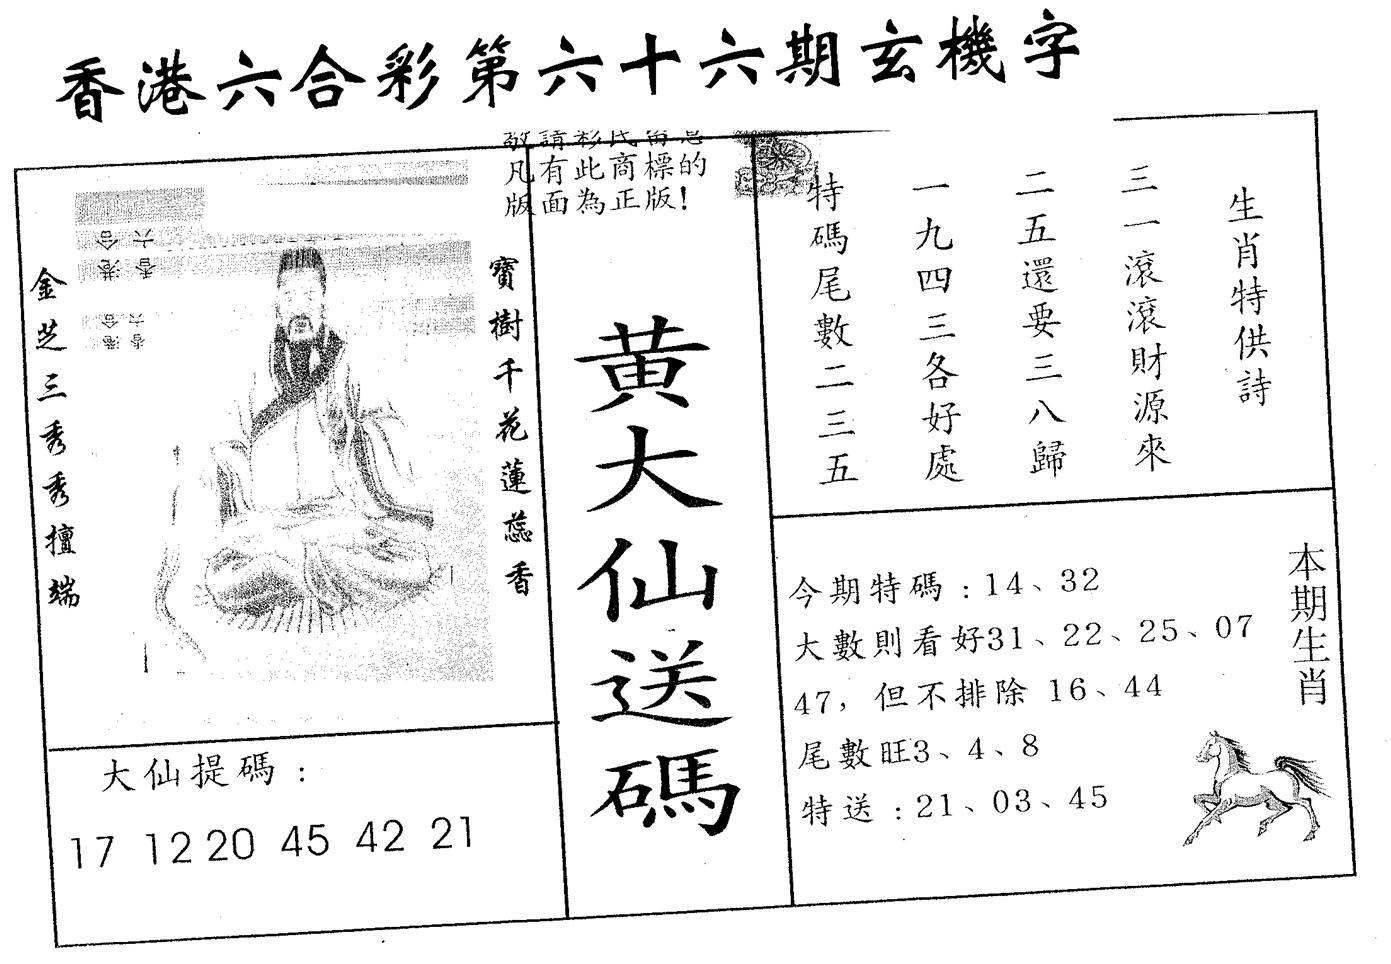 香港六合彩第六十六期玄機字
敬請彩民留意
凡有此商標的
版面為正版!
寶樹千花蓮蕊香
金芝三秀秀擅端
香港六合
香港合六
大仙提碼：
17 12 20 45 42 21
黄大仙送碼
生肖特供詩
三一滾滾財源來
二五還要三八歸
一九四三各好處
特碼尾數二三五
本期生肖
今期特碼：14、32
大數則看好31、22、25、07
47，但不排除 16、44
尾數旺3、4、8
特送：21、03、45